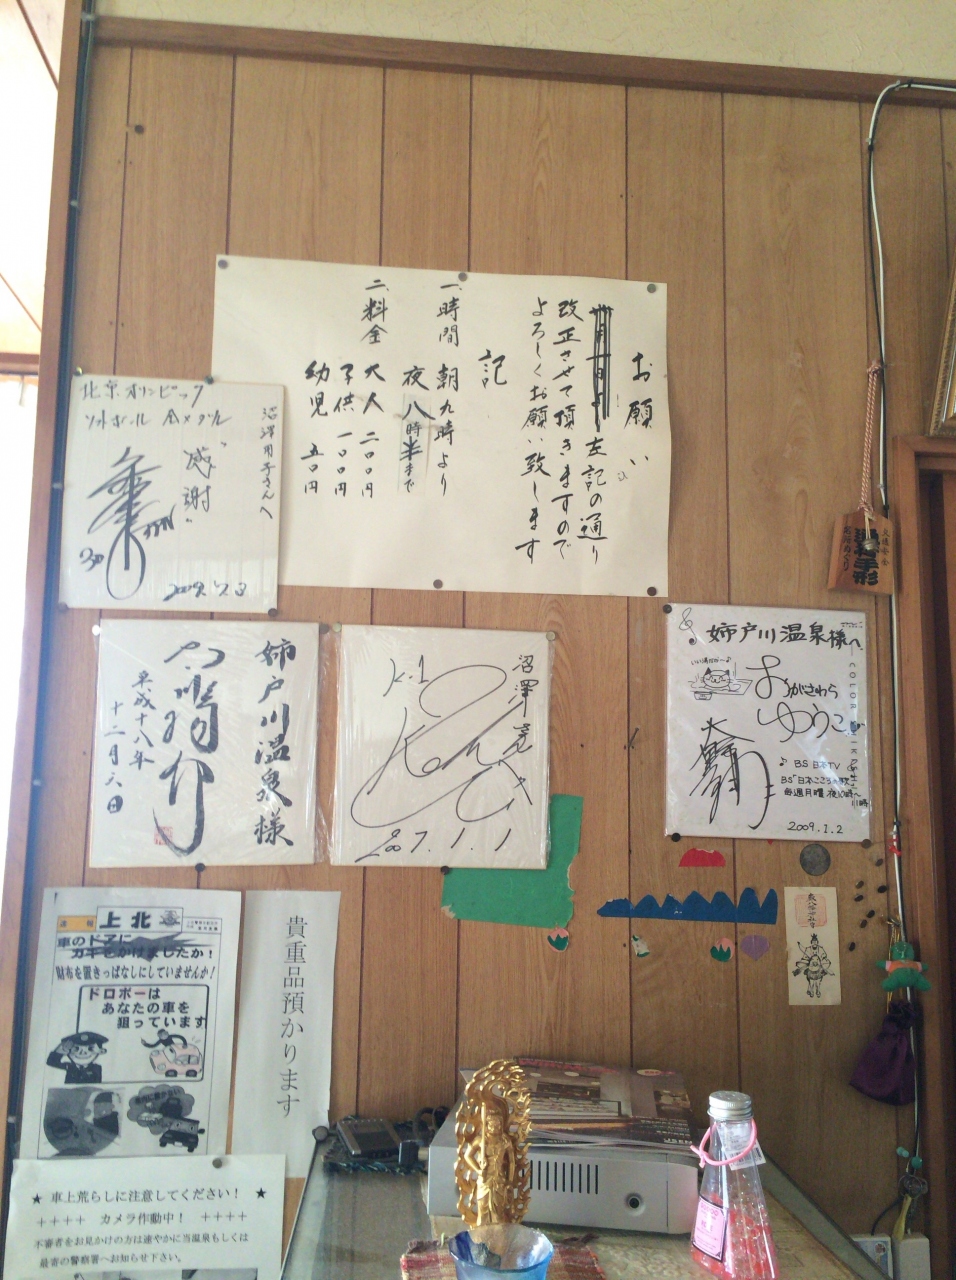 お願い
左記の通り
改正させて頂きますので
よろしくお願い致します
記
一、時間 朝九時より
夜八時半まで
二、料金 大人 二〇〇円
子供 一〇〇円
幼児 五〇円
北京オリンピック
ソフトボール 金メダル
沼澤用子さんへ
"感謝"
2009.
姉戸川温泉様
平成十八年
十二月六日
沼澤さんへ
K-1
2007.1.1
姉戸川温泉様へ
おがさわら
ゆうこ
♪ BS日本TV
BS"日本こころの歌"
毎週月曜 夜10時~
11時
2009.1.2
通行手形
速報 上北
車のドアに
カギをかけましたか!
財布を置きっぱなしにしていませんか!
ドロボーは
あなたの車を
狙っています
貴重品預かります
★ 車上荒らしに注意してください! ★
++++ カメラ作動中! ++++
不審者をお見かけの方は速やかに当温泉もしくは
最寄の警察署へお知らせ下さい。